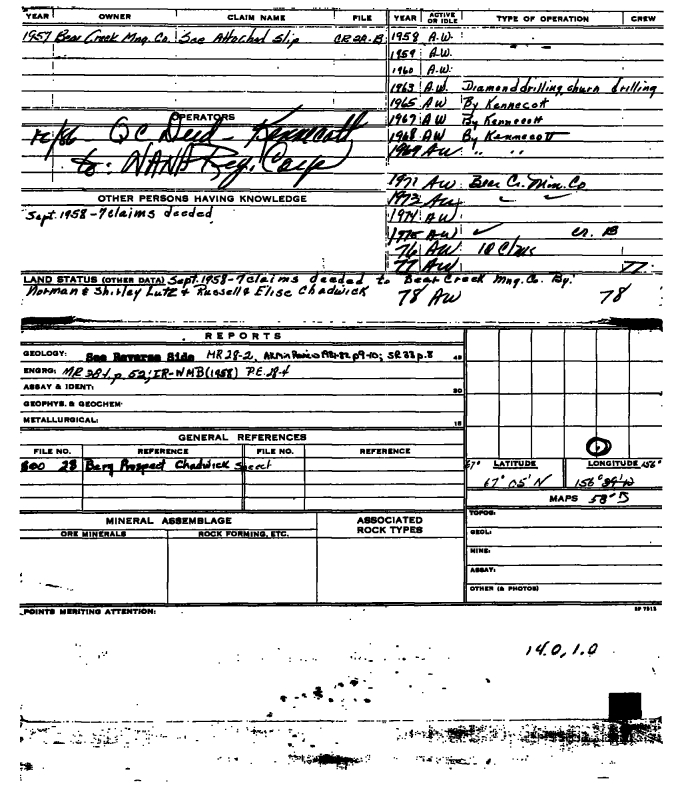 YEAR OWNER CLAIM NAME FILE YEAR ACTIVE OR IDLE TYPE OF OPERATION CREW
1957 Bear Creek Mng. Co. See Attached Slip 1958 A.W.
1959 A.W.
1960 A.W.
1963 A.W. Diamond drilling, churn drilling
1965 AW By Kennecott
OPERATORS 1967 AW By Kennecott
10/86 - QC Deed - Kennecott 1968 AW By Kennecott
to: NANA Reg. Corp 1969 AW " "
1971 AW Bear Cr. Min. Co
OTHER PERSONS HAVING KNOWLEDGE 1973 AW
Sept. 1958 - 7 claims deeded 1974 AW
1975 AW ✓ cr. 18
76 AW
77 AW 77
LAND STATUS (OTHER DATA) Sept. 1958 - 7 claims deeded to Bear Creek Mng. Co. By:
Norman & Shirley Lutz & Russell & Elise Chadwick 78 AW 78
REPORTS
GEOLOGY: See Reverse Side MR 28-2, p9-10; SR 33 p. 8
ENGRG: MR 28-1, p. 52; IR-WMB (1958) P.E. 28-4
ASSAY & IDENT:
GEOPHYS. & GEOCHEM:
METALLURGICAL:
GENERAL REFERENCES
FILE NO. REFERENCE FILE NO. REFERENCE
800 28 Berg Prospect Chadwick
67° LATITUDE LONGITUDE 156°
67° 05' N 156°
MAPS 58° B
MINERAL ASSEMBLAGE ASSOCIATED ROCK TYPES
ORE MINERALS ROCK FORMING, ETC.
TOPOG:
GEOL:
MINE:
ASSAY:
OTHER (& PHOTOS)
POINTS MERITING ATTENTION:
14.0, 1.0